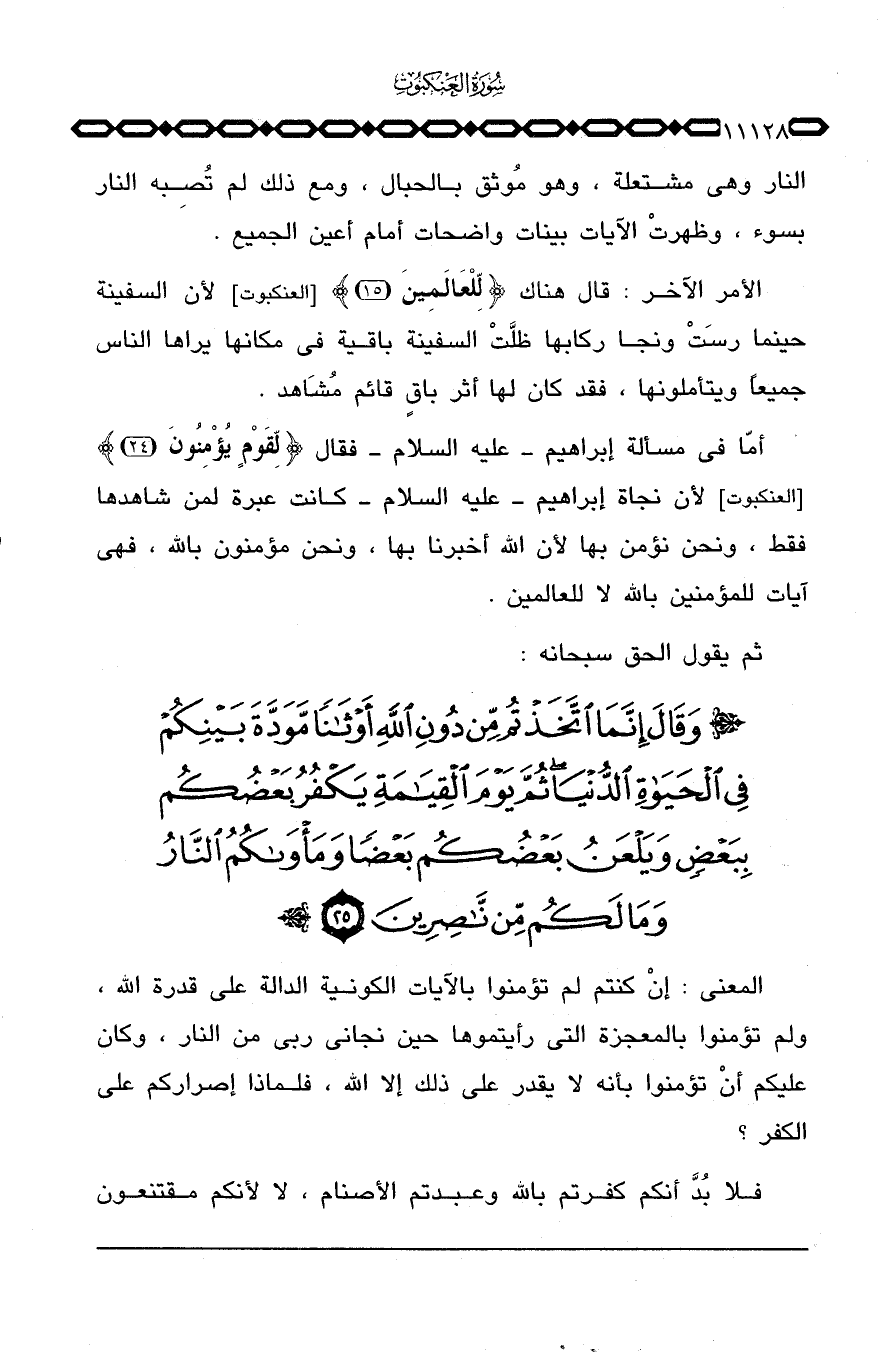 سُورَةُ العَنكَبُوتِ
١١١٢٨
النار وهى مشتعلة ، وهو مُوثق بالحبال ، ومع ذلك لم تُصِبه النار
بسوء ، وظهرتْ الآيات بينات واضحات أمام أعين الجميع .
الأمر الآخر : قال هناك ﴿ لِّلْعَالَمِينَ (١٥) ﴾ [العنكبوت] لأن السفينة
حينما رسَتْ ونجا ركابها ظلَّتْ السفينة باقية فى مكانها يراها الناس
جميعاً ويتأملونها ، فقد كان لها أثر باقٍ قائم مُشَاهد .
أمّا فى مسألة إبراهيم ـ عليه السلام ـ فقال ﴿ لِّقَوْمٍ يُؤْمِنُونَ (٢٤) ﴾
[العنكبوت] لأن نجاة إبراهيم ـ عليه السلام ـ كانت عبرة لمن شاهدها
فقط ، ونحن نؤمن بها لأن الله أخبرنا بها ، ونحن مؤمنون بالله ، فهى
آيات للمؤمنين بالله لا للعالمين .
ثم يقول الحق سبحانه :
وَقَالَ إِنَّمَا ٱتَّخَذْتُم مِّن دُونِ ٱللَّهِ أَوْثَٰنًا مَّوَدَّةَ بَيْنِكُمْ
فِى ٱلْحَيَوٰةِ ٱلدُّنْيَا ۖ ثُمَّ يَوْمَ ٱلْقِيَٰمَةِ يَكْفُرُ بَعْضُكُم
بِبَعْضٍ وَيَلْعَنُ بَعْضُكُم بَعْضًا وَمَأْوَىٰكُمُ ٱلنَّارُ
وَمَا لَكُم مِّن نَّٰصِرِينَ ٢٥
المعنى : إنْ كنتم لم تؤمنوا بالآيات الكونية الدالة على قدرة الله ،
ولم تؤمنوا بالمعجزة التى رأيتموها حين نجانى ربى من النار ، وكان
عليكم أنْ تؤمنوا بأنه لا يقدر على ذلك إلا الله ، فلماذا إصراركم على
الكفر ؟
فلا بُدَّ أنكم كفرتم بالله وعبدتم الأصنام ، لا لأنكم مقتنعون